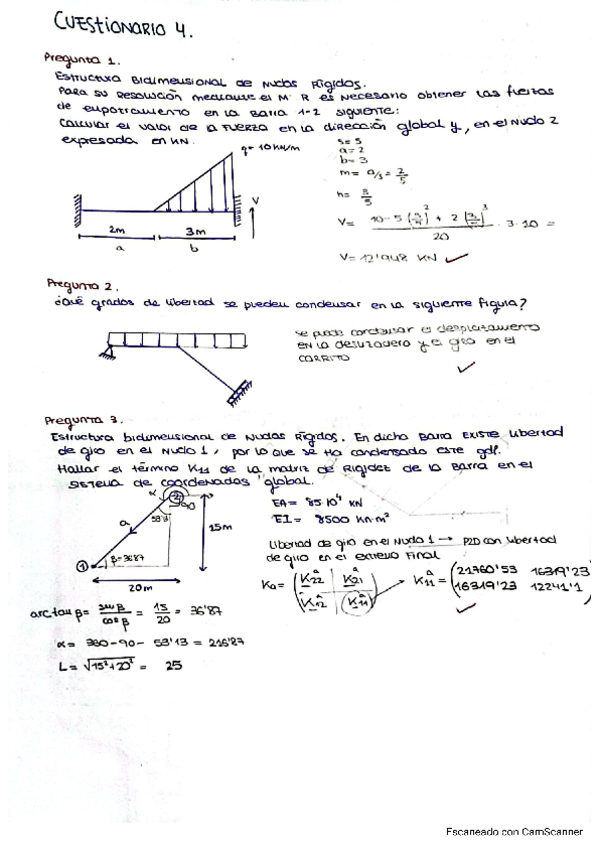 CUESTIONARIO 4.
Pregunta 1.
Estructura Bidimensional de Nudos Rígidos.
Para su resolución mediante el M R es necesario obtener las fuerzas
de empotramiento en la barra 1-2 siguiente:
Calcular el valor de la fuerza en la dirección global y, en el nudo 2
expresada en kN.
q= 10 kN/m
V
2m
3m
a
b
s= 5
a= 2
b= 3
m= a/s = 2/5
n= 3/5
V= 10-5 ( )² + 2 ( )³ / 20 · 3·10 =
V= 12'948 KN ✓
Pregunta 2.
¿Qué grados de libertad se pueden condensar en la siguiente figura?
se puede condensar el desplazamiento
en la deslizadera y el giro en el
carrito
✓
Pregunta 3.
Estructura bidimensional de Nudos Rígidos. En dicha barra existe libertad
de giro en el nudo 1, por lo que se ha condensado este gdl.
Hallar el término K11 de la matriz de rigidez de la barra en el
sistema de coordenadas global.
α
2
90
53'13
a
15m
1
β=36'87
20m
EA= 85·10⁴ kN
EI= 8500 kN·m²
Libertad de giro en el nudo 1 → P2D con libertad
de giro en el extremo final
Ka= (K22ᵃ K21ᵃ / K12ᵃ K11ᵃ) → K11ᵃ = (21760'53 16319'23 / 16319'23 12241'1)
✓
arctau β= sen β / cos β = 15/20 = 36'87
α= 360-90- 53'13 = 216'87
L= √15²+20² = 25
Escaneado con CamScanner